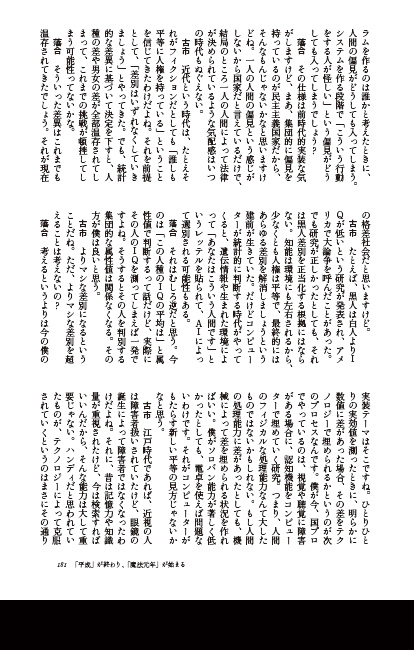 ラムを作るのは誰かと考えたときに、
人間の偏見がどうしても入ってしまう。
システムを作る段階で「こういう行動
をする人が怪しい」という偏見がどう
しても入ってしまうでしょう？
落合　その仕様は前時代的実装な気
がしますけど、まあ、集団的に偏見を
持っているのが民主主義国家だから、
そんなもんじゃないかなと思いますけ
どね。一人の人間の偏見という感じが
しないから国家だと言えているだけで、
結局のところ一人の人間によって法律
が決められているような気配感はいつ
の時代もぬぐえない。
古市　近代という時代は、たとえそ
れがフィクションだとしても「誰しも
平等に人権を持っている」ということ
を信じてきたわけだよね。それを前提
として、「差別はいずれなくしていき
ましょう」とやってきた。でも、統計
的な差異に基づいて決定を下すと、人
種の差や男女の差が全部温存されてし
まって、これまでの挑戦が頓挫してし
まう可能性ってないかな。
落合　そういった差異はこれまでも
温存されてきたでしょう。それが現在
の格差社会だと思いますけど。
古市　たとえば、黒人は白人よりI
Qが低いという研究が発表され、アメ
リカで大論争を呼んだことがあった。
でも研究が正しかったとしても、それ
は黒人差別を正当化する根拠にはなら
ない。知能は環境にも左右されるから、
少なくとも人権は平等で、最終的には
あらゆる差別を解消しましょうという
建前が生きていた。だけどコンピュー
ターが統計的に判断する時代がやって
くると、遺伝情報や生まれた環境によ
ってあなたはこういう人間です」と
いうレッテルを貼られて、AIによっ
て選別される可能性もある。
落合　それはむしろ逆だと思う。今
のは「この人種のIQの平均は」と属
性値で判断するって話だけど、実際に
その人のIQを測ってしまえば一発で
すよね。そうするとその人を判別する
集団的な属性値は関係なくなる。その
方が僕は良いと思う。
古市　よりマシな差別になるという
ことだね。ただ、よりマシな差別を超
えることは考えないの？
落合　考えるというよりは今の僕の
実装テーマはそこですね。ひとりひと
りの実効値を測ったときに、明らかに
数値に差があった場合、その差をテク
ノロジーで埋められるかというのが次
のプロセスなんです。僕が今、国プロ
でやっているのは、視覚や聴覚に障害
がある場合に、認知機能をコンピュー
ターで埋めていく研究。つまり、人間
のフィジカルな処理能力なんて大した
ものではないかもしれない。もし人間
の処理能力に差があったとしても、機
械によって差を埋められる状況を作れ
ばいい。僕がソロバン能力が著しく低
かったとしても、電卓を使えば問題な
いわけです。それがコンピューターが
もたらす新しい平等の見方じゃないか
なと思う。
古市　江戸時代であれば、近視の人
は障害者扱いされていたけど、眼鏡の
誕生によって障害者ではなくなったわ
けだよね。それに、昔は記憶力や知識
量が重視されたけど、今は検索すれば
いいんだから、そんな能力は大して重
要じゃない。ハンディだと思われてい
たものが、テクノロジーによって克服
されていくというのはまさにその通り
181　「平成」が終わり、「魔法元年」が始まる